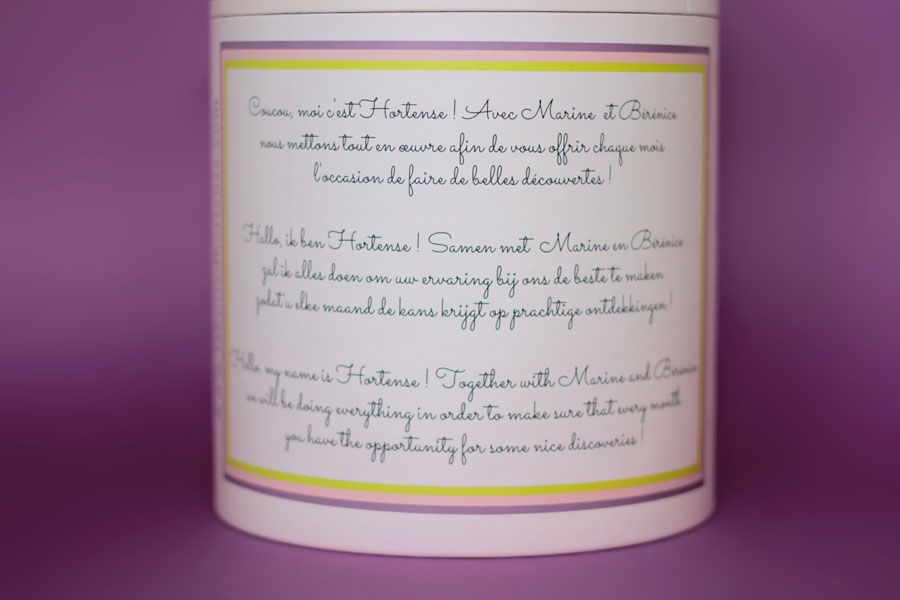 Coucou, moi c'est Hortense ! Avec Marine et Bérénice
nous mettons tout en œuvre afin de vous offrir chaque mois
l'occasion de faire de belles découvertes !
Hallo, ik ben Hortense ! Samen met Marine en Bérénice
zal ik alles doen om uw ervaring bij ons de beste te maken
zodat u elke maand de kans krijgt op prachtige ontdekkingen !
Hello, my name is Hortense ! Together with Marine and Bérénice
we will be doing everything in order to make sure that every month
you have the opportunity for some nice discoveries !